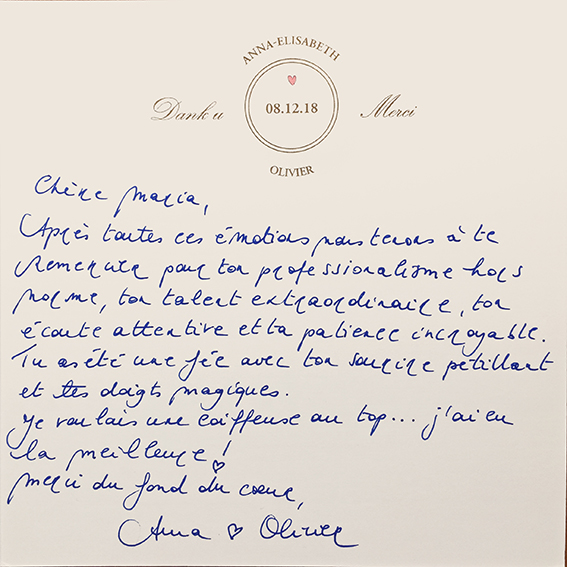 ANNA-ELISABETH
Dank u 08.12.18 Merci
OLIVIER
Chère Maria,
Après toutes ces émotions nous tenons à te
remercier pour ton professionalisme hors
norme, ton talent extraordinaire, ton
écoute attentive et ta patience incroyable.
Tu as été une fée avec ton sourire pétillant
et tes doigts magiques.
Je voulais une coiffeuse au top... j'ai eu
la meilleure!
Merci du fond du cœur,
Anna ♡ Olivier